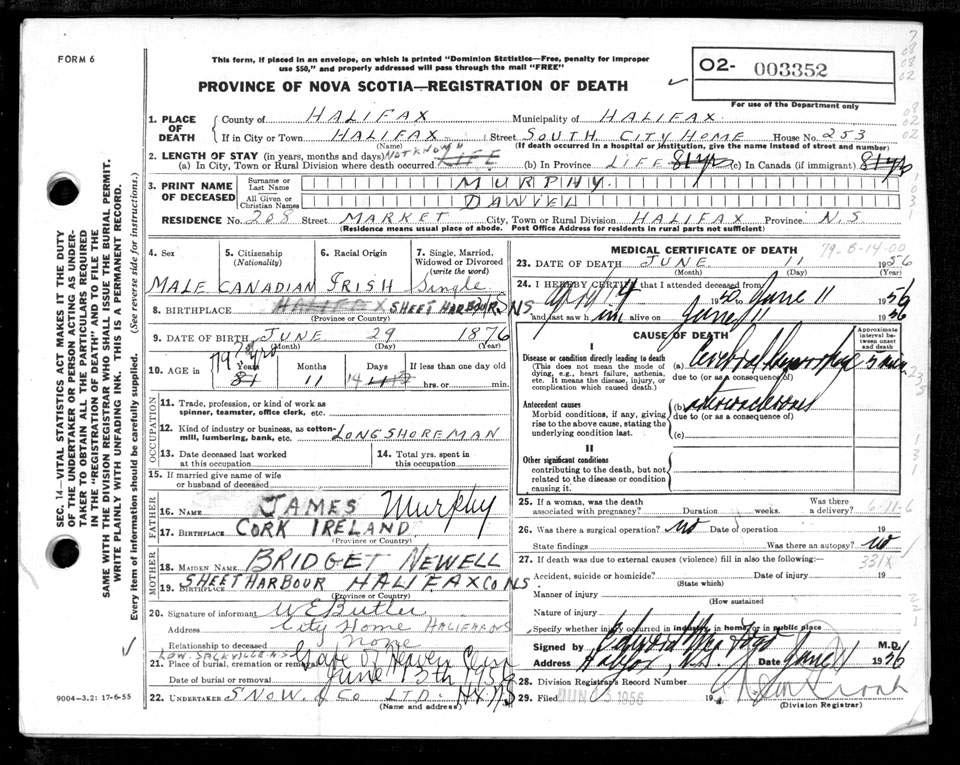 FORM 6
This form, if placed in an envelope, on which is printed "Dominion Statistics—Free, penalty for improper
use $50," and properly addressed will pass through the mail "FREE"
PROVINCE OF NOVA SCOTIA—REGISTRATION OF DEATH
02- 003352
For use of the Department only
1. PLACE OF DEATH
County of HALIFAX Municipality of HALIFAX
If in City or Town HALIFAX Street SOUTH CITY HOME House No. 253
(Name) (If death occurred in a hospital or institution, give the name instead of street and number)
2. LENGTH OF STAY (in years, months and days) NOT KNOWN
(a) In City, Town or Rural Division where death occurred LIFE (b) In Province LIFE 81 yrs (c) In Canada (if immigrant) 81 yrs
3. PRINT NAME OF DECEASED
Surname or Last Name MURPHY.
All Given or Christian Names DANIEL
RESIDENCE No. 208 Street MARKET City, Town or Rural Division HALIFAX Province N.S
(Residence means usual place of abode. Post Office Address for residents in rural parts not sufficient)
4. Sex
MALE
5. Citizenship (Nationality)
CANADIAN
6. Racial Origin
IRISH
7. Single, Married, Widowed or Divorced (write the word)
Single
8. BIRTHPLACE HALIFAX SHEET HARBOUR NS
(Province or Country)
9. DATE OF BIRTH JUNE 29 1876
(Month) (Day) (Year)
10. AGE in
79 yrs
Years Months Days If less than one day old
81 11 14 hrs. or min.
OCCUPATION
11. Trade, profession, or kind of work as
spinner, teamster, office clerk, etc.
12. Kind of industry or business, as cotton-
mill, lumbering, bank, etc. LONGSHOREMAN
13. Date deceased last worked
at this occupation
14. Total yrs. spent in
this occupation
15. If married give name of wife
or husband of deceased
FATHER
16. NAME JAMES Murphy
17. BIRTHPLACE CORK IRELAND
(Province or Country)
MOTHER
18. MAIDEN NAME BRIDGET NEWELL
19. BIRTHPLACE SHEET HARBOUR HALIFAX CO NS.
(Province or Country)
20. Signature of informant W E Butler
Address City Home HALIFAX NS
Relationship to deceased none
LOW. SACKVILLE N.S
21. Place of burial, cremation or removal Gate of Heaven Cem
Date of burial or removal June 13th 1956
22. UNDERTAKER SNOW & CO LTD. HX NS
(Name and address)
MEDICAL CERTIFICATE OF DEATH
79-B-14-00
23. DATE OF DEATH JUNE 11 1956
(Month) (Day) (Year)
24. I HEREBY CERTIFY that I attended deceased from
April 4 1952 to June 11 1956
and last saw him alive on June 11 1956
CAUSE OF DEATH
Approximate interval between onset and death
I
Disease or condition directly leading to death
(This does not mean the mode of
dying, e.g., heart failure, asthenia,
etc. It means the disease, injury, or
complication which caused death.)
(a) Cerebral hemorrhage 5 min
due to (or as a consequence of)
Antecedent causes
Morbid conditions, if any, giving
rise to the above cause, stating the
underlying condition last.
(b) arteriosclerosis
due to (or as a consequence of)
(c)
II
Other significant conditions
contributing to the death, but not
related to the disease or condition
causing it.
25. If a woman, was the death
associated with pregnancy? Duration weeks. Was there a delivery?
6-11-6
26. Was there a surgical operation? no Date of operation 19
State findings Was there an autopsy? no
27. If death was due to external causes (violence) fill in also the following:—
331X
Accident, suicide or homicide? Date of injury 19
(State which)
Manner of injury
(How sustained)
Nature of injury
Specify whether injury occurred in industry, in home, or in public place
Signed by M.D.
Address Halifax, N.S. Date June 11 1956
28. Division Registrar's Record Number
29. Filed JUN 13 1956 19
(Division Registrar)
SEC. 14—VITAL STATISTICS ACT MAKES IT THE DUTY
OF THE UNDERTAKER OR PERSON ACTING AS UNDER-
TAKER TO OBTAIN ALL THE PARTICULARS REQUIRED
IN THE "REGISTRATION OF DEATH" AND TO FILE THE
SAME WITH THE DIVISION REGISTRAR WHO SHALL ISSUE THE BURIAL PERMIT.
WRITE PLAINLY WITH UNFADING INK. THIS IS A PERMANENT RECORD.
Every item of information should be carefully supplied. (See reverse side for instructions.)
9004-3.2: 17-6-55